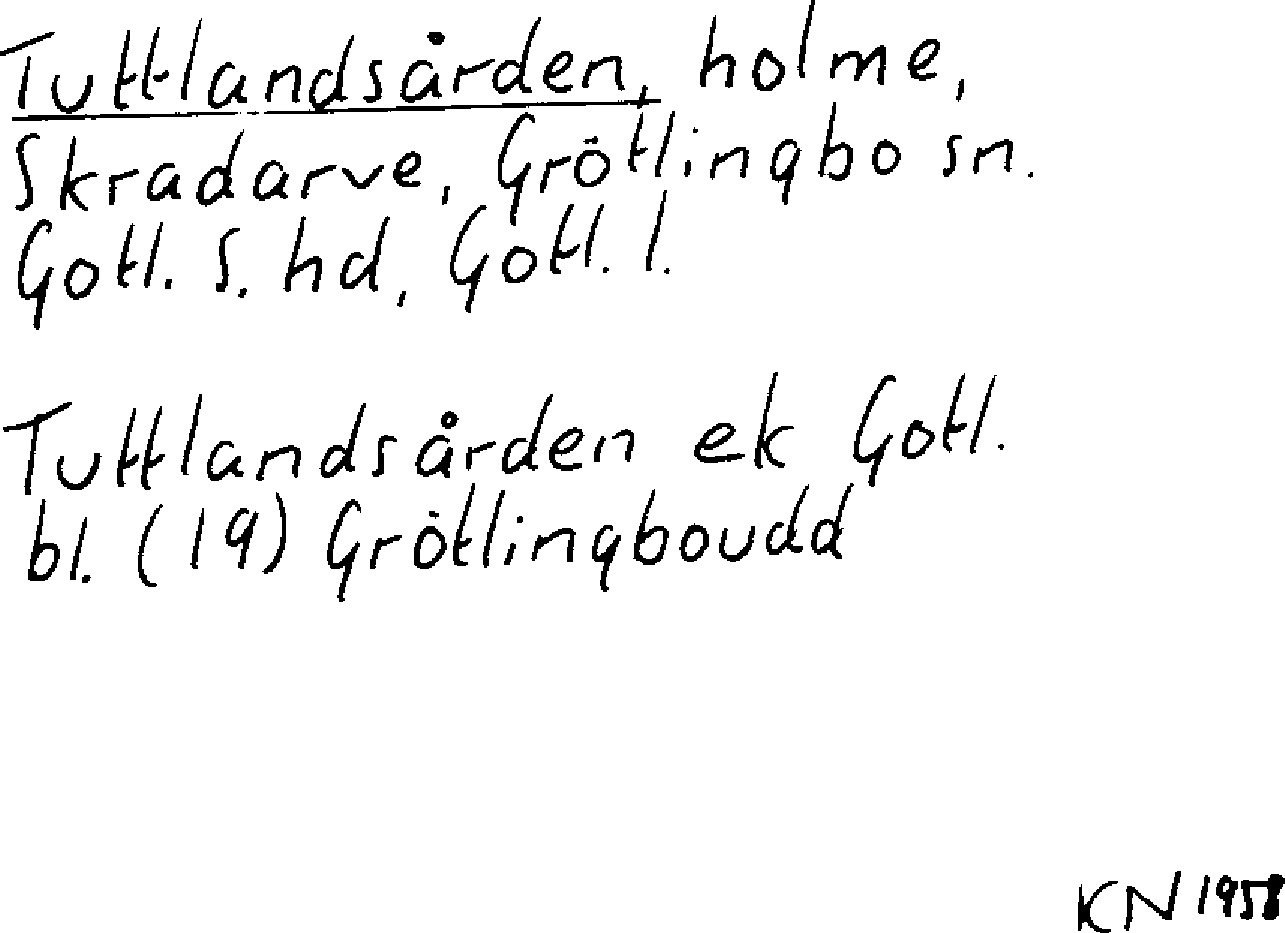 Tuttlandsården, holme,
Skradarve, Grötlingbo sn.
Gotl. S. hd, Gotl. l.
Tuttlandsården ek Gotl.
bl. (19) Grötlingboudd
KN 1958